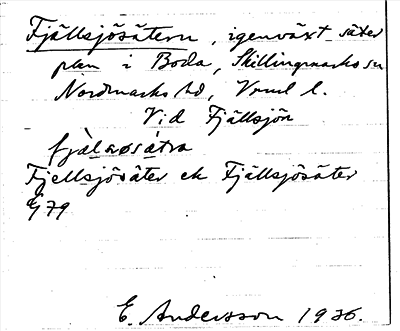 Fjällsjösätern, igenväxt säter
plan i Boda, Skillingmarks sn
Nordmarks hd, Vrml l.
Vid Fjällsjön
Fjellsjösäter ek Fjällsjösäter
E. Andersson 1936.